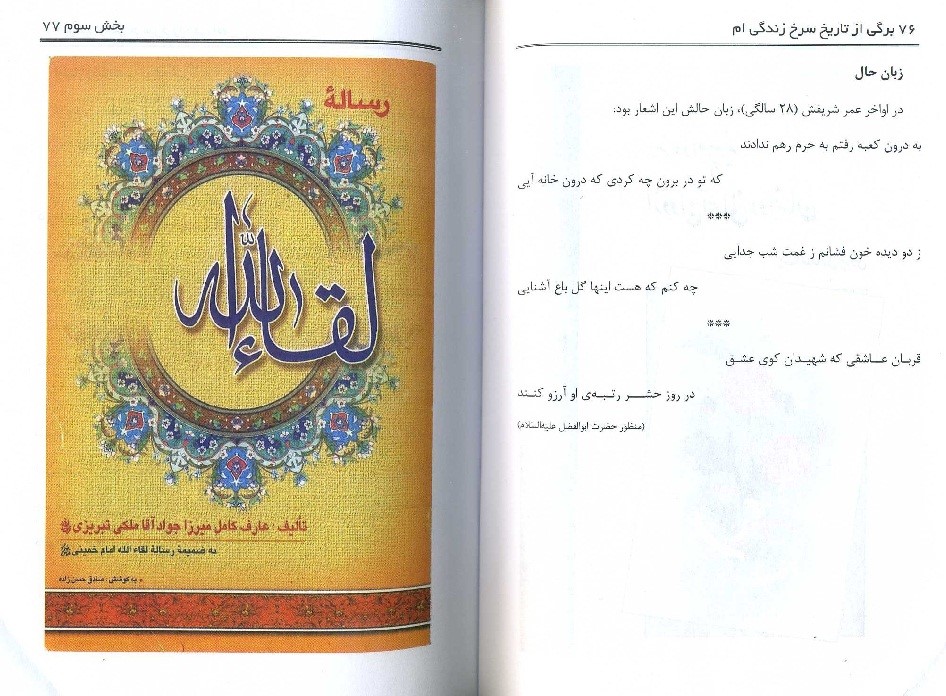 ۷۶ برگی از تاریخ سرخ زندگی ام
زبان حال
در اواخر عمر شریفش (۲۸ سالگی)، زبان حالش این اشعار بود:
به درون کعبه رفتم به حرم رهم ندادند
که تو در برون چه کردی که درون خانه آیی
***
ز دو دیده خون فشانم ز غمت شب جدایی
چه کنم که هست اینها گل باغ آشنایی
***
قربان عـاشقی که شهیدان کوی عشق
در روز حشـر رتبه‌ی او آرزو کنند
(منظور حضرت ابوالفضل علیه‌السلام)
بخش سوم ۷۷
رسالهٔ
لقاءالله
تألیف: عارف کامل میرزا جواد آقا ملکی تبریزی
به ضمیمهٔ رسالهٔ لقاء الله امام خمینی
• به کوشش: صادق حسن‌زاده